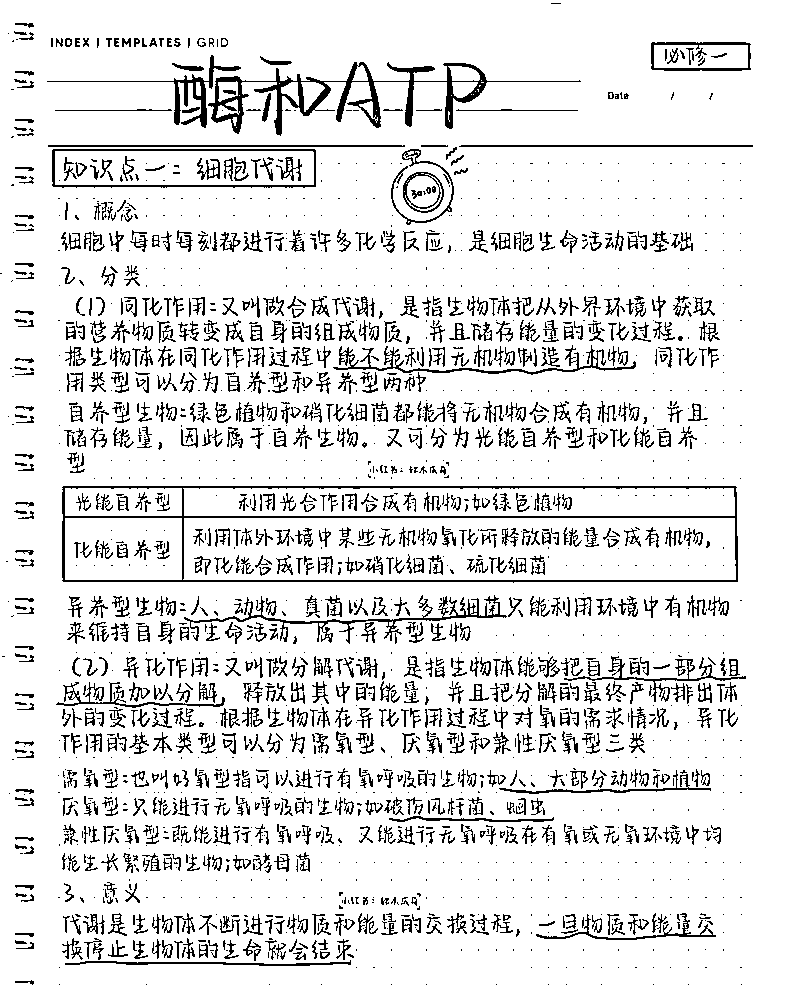 INDEX | TEMPLATES | GRID
必修一
酶和ATP
Date / /
知识点一：细胞代谢
30:00
1、概念
细胞中每时每刻都进行着许多化学反应，是细胞生命活动的基础
2、分类
（1）同化作用：又叫做合成代谢，是指生物体把从外界环境中获取
的营养物质转变成自身的组成物质，并且储存能量的变化过程。根
据生物体在同化作用过程中能不能利用无机物制造有机物，同化作
用类型可以分为自养型和异养型两种
自养型生物：绿色植物和硝化细菌都能将无机物合成有机物，并且
储存能量，因此属于自养生物。又可分为光能自养型和化能自养
型
光能自养型 利用光合作用合成有机物；如绿色植物
化能自养型 利用体外环境中某些无机物氧化所释放的能量合成有机物，
即化能合成作用；如硝化细菌、硫化细菌
异养型生物：人、动物、真菌以及大多数细菌只能利用环境中有机物
来维持自身的生命活动，属于异养型生物
（2）异化作用：又叫做分解代谢，是指生物体能够把自身的一部分组
成物质加以分解，释放出其中的能量，并且把分解的最终产物排出体
外的变化过程。根据生物体在异化作用过程中对氧的需求情况，异化
作用的基本类型可以分为需氧型、厌氧型和兼性厌氧型三类
需氧型：也叫好氧型指可以进行有氧呼吸的生物；如人、大部分动物和植物
厌氧型：只能进行无氧呼吸的生物；如破伤风杆菌、蛔虫
兼性厌氧型：既能进行有氧呼吸、又能进行无氧呼吸在有氧或无氧环境中均
能生长繁殖的生物；如酵母菌
3、意义
代谢是生物体不断进行物质和能量的交换过程，一旦物质和能量交
换停止生物体的生命就会结束